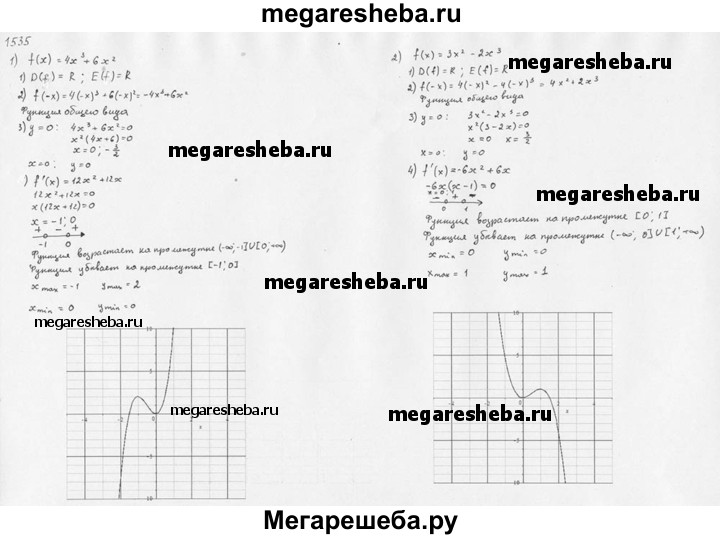 megaresheba.ru
1535
1) f(x) = 4x³ + 6x²
1) D(f) = R ; E(f) = R
2) f(-x) = 4(-x)³ + 6(-x)² = -4x³ + 6x²
Функция общего вида
3) y = 0 : 4x³ + 6x² = 0
x²(4x + 6) = 0
x = 0 ; -3/2
x = 0 : y = 0
) f'(x) = 12x² + 12x
12x² + 12x = 0
x(12x + 12) = 0
x = -1 ; 0
+ - +
-1 0
Функция возрастает на промежутке (-∞; -1] U [0; +∞)
Функция убывает на промежутке [-1; 0]
x max = -1 y max = 2
x min = 0 y min = 0
megaresheba.ru
megaresheba.ru
megaresheba.ru
2) f(x) = 3x² - 2x³
1) D(f) = R ; E(f) = R
2) f(-x) = 4(-x)² - 4(-x)³ = 4x² + 2x³
Функция общего вида
3) y = 0 : 3x² - 2x³ = 0
x²(3 - 2x) = 0
x = 0 x = 3/2
x = 0 : y = 0
4) f'(x) = -6x² + 6x
-6x(x - 1) = 0
x = 0 ; 1
- + -
0 1
Функция возрастает на промежутке [0; 1]
Функция убывает на промежутке (-∞; 0] U [1; +∞)
x min = 0 y min = 0
x max = 1 y max = 1
megaresheba.ru
megaresheba.ru
megaresheba.ru
megaresheba.ru
Мегарешеба.ру